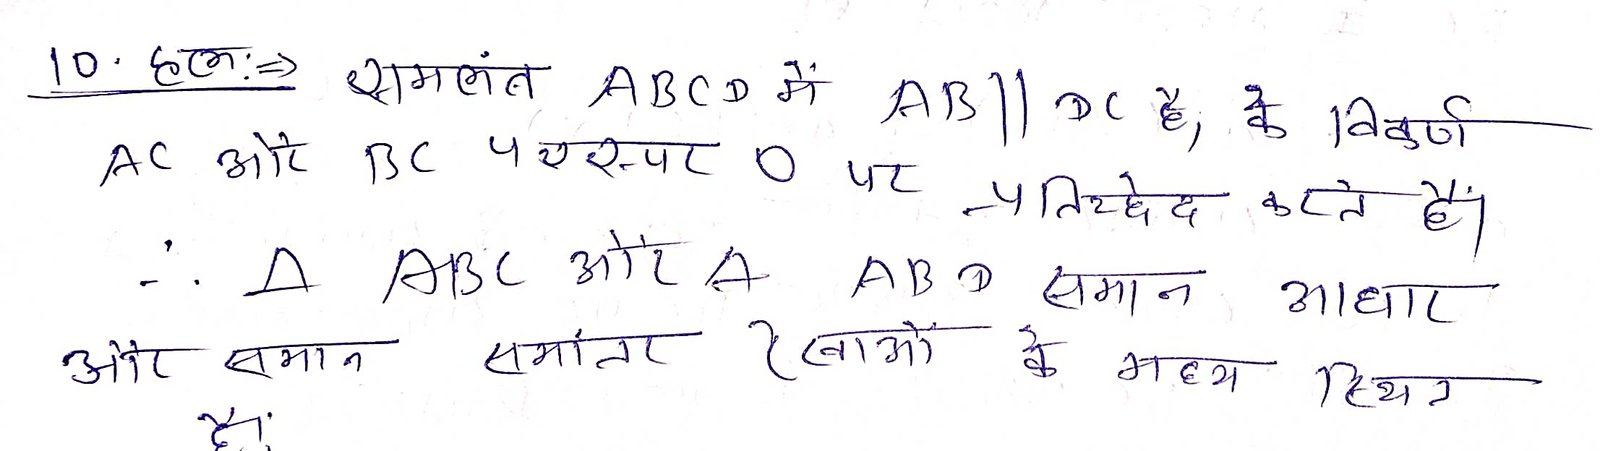 10. हल:⇒ समलंब ABCD में AB||DC है, के विकर्ण
AC और BC परस्पर O पर प्रतिच्छेद करते हैं।
∴ Δ ABC और Δ ABD समान आधार
और समान समांतर रेखाओं के मध्य स्थित
है।